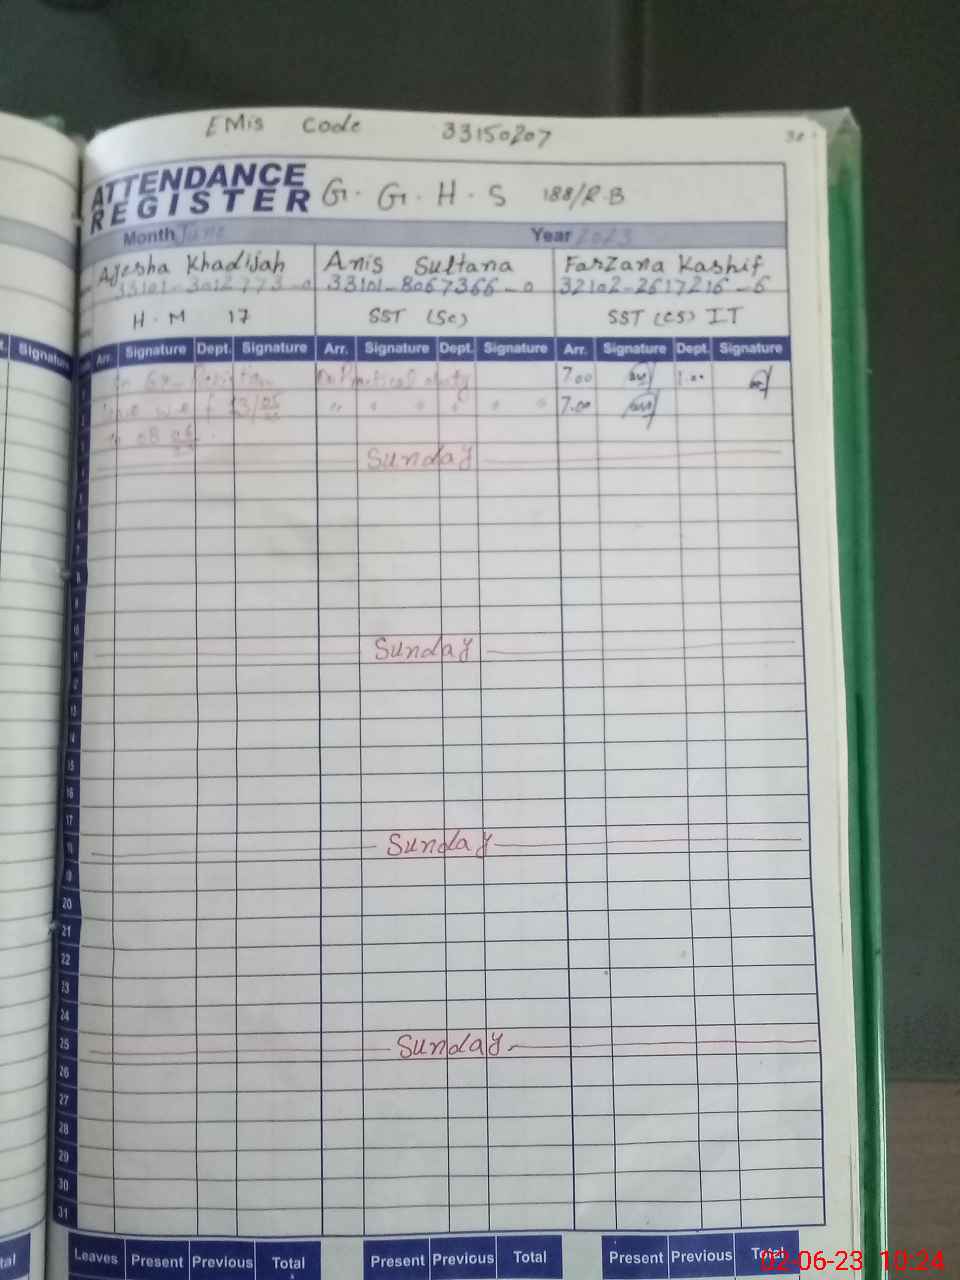 EMis Code 33150207
ATTENDANCE
REGISTER G. G. H. S 188/R.B
Month June Year 2023
Ayesha Khadijah Anis Sultana Farzana Kashif
33101-3012773-0 33101-8067366-0 32102-2617216-6
H.M 17 SST (Sc) SST (CS) IT
Signature Arr. Signature Dept. Signature Arr. Signature Dept. Signature Arr. Signature Dept. Signature
1 On Practical duty 7.00 1.00
2 leave w.e.f 13/05 " " " " " " 7.00
3 08
4 Sunday
5
6
7
8
9
10
11 Sunday
12
13
14
15
16
17
18 Sunday
19
20
21
22
23
24
25 Sunday
26
27
28
29
30
31
Leaves Present Previous Total Present Previous Total Present Previous Total
02-06-23 10:24